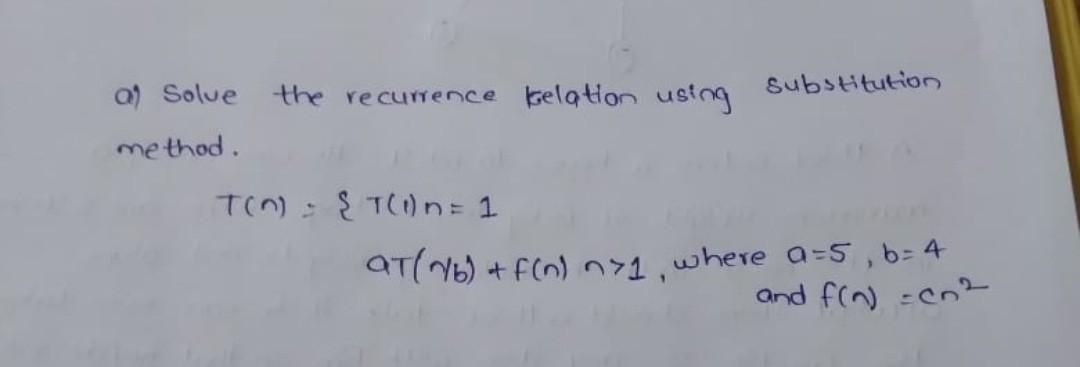 a) Solve the recurrence relation using substitution
method.
T(n) = { T(1) n = 1
aT(n/b) + f(n) n>1, where a=5, b=4
and f(n) = cn²